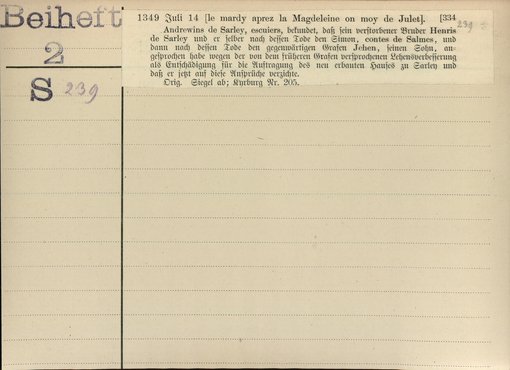 Beiheft
2
S 239
1349 Juli 14 [le mardy aprez la Magdeleine on moy de Julet]. [334
239
Andrewins de Sarley, escuiers, bekundet, daß sein verstorbener Bruder Henris
de Sarley und er selber nach dessen Tode den Simon, contes de Salmes, und
dann nach dessen Tode den gegenwärtigen Grafen Jehen, seinen Sohn, an-
gesprochen habe wegen der von dem früheren Grafen versprochenen Lehensverbesserung
als Entschädigung für die Auftragung des neu erbauten Hauses zu Sarley und
daß er jetzt auf diese Ansprüche verzichte.
Orig. Siegel ab; Kyrburg Nr. 205.